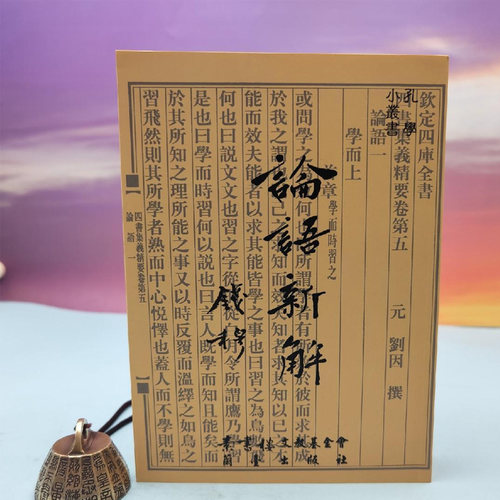 孔學
小叢書
論語新解
錢穆
素書樓文教基金會
蘭臺出版社
欽定四庫全書
四書集義精要卷第五 元 劉因 撰
論語一
學而上
章 學而時習之
或問學之何也所謂者有所於彼而求
於我之謂己之知而知者以求其知以己之
能而效夫能者以求其能皆學之事也曰習之為鳥
何也曰說文文也習之字從從月令所謂鷹乃習
是也曰學而時習何以說也曰言人既學而知且能矣而
於其所知之理所能之事又以時反覆而溫繹之如鳥之
習飛然則其所學者熟而中心悅懌也蓋人而不學則無
四書集義精要卷第五
論語一